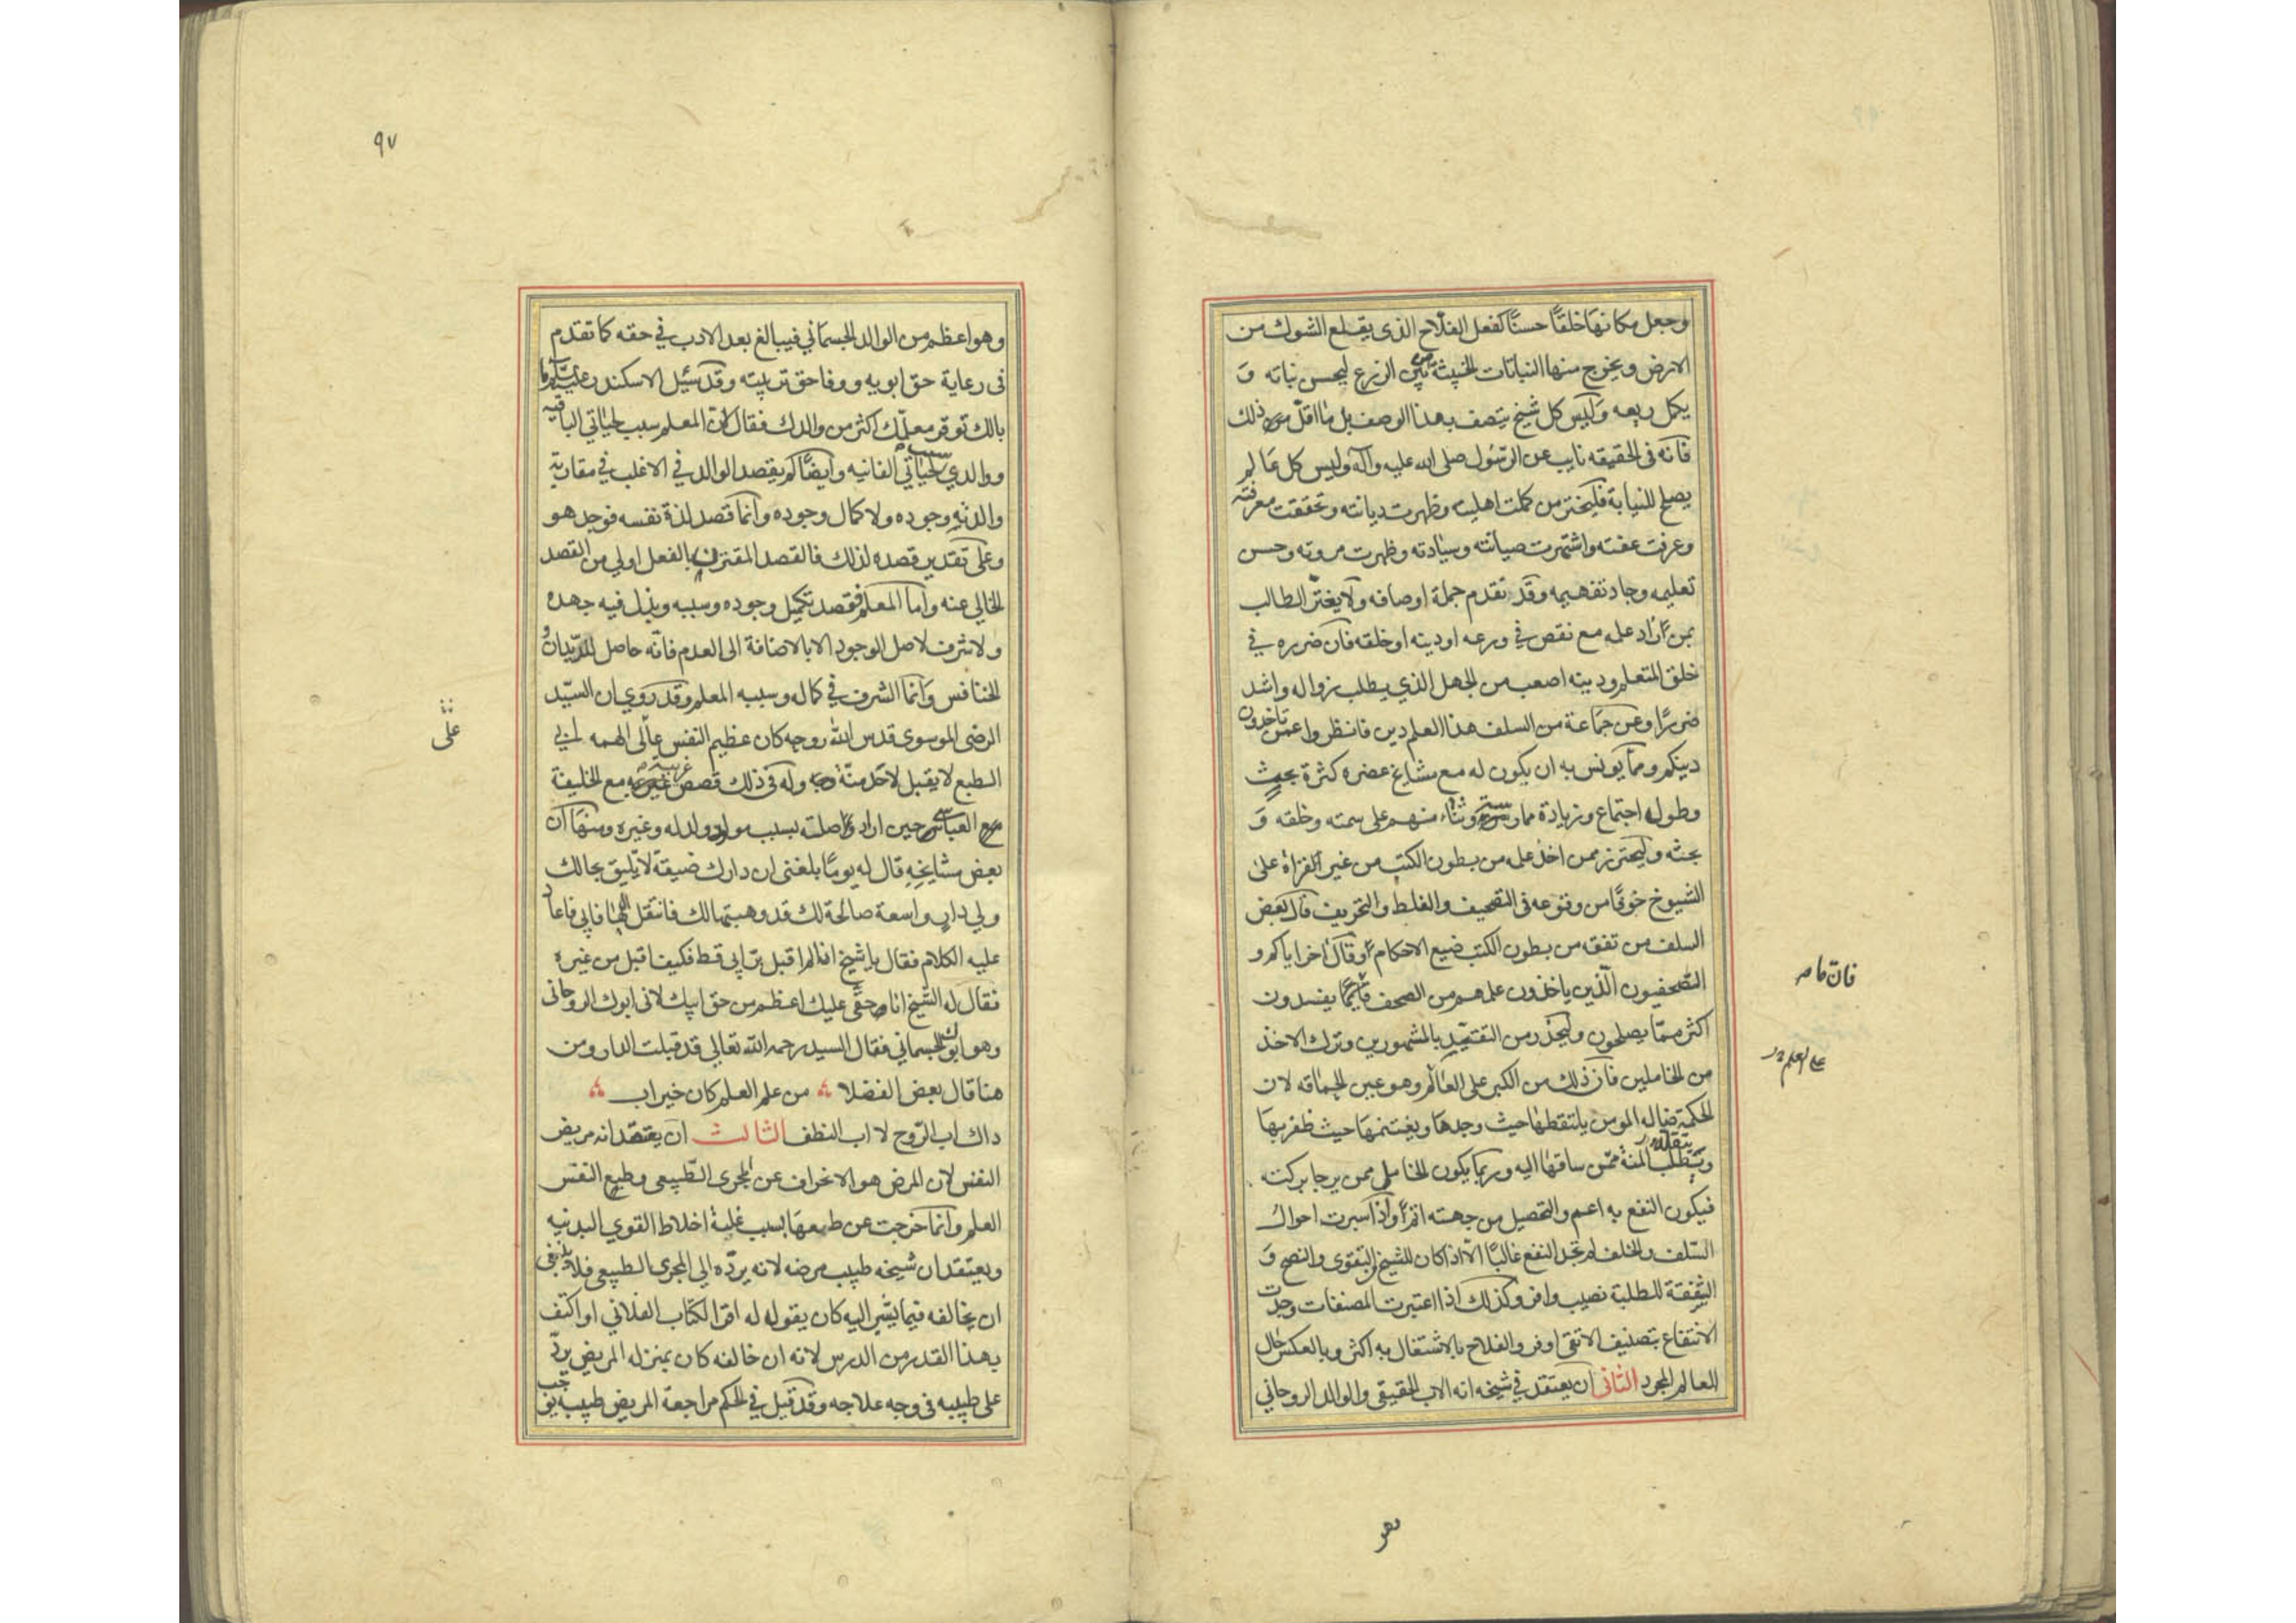 وجعل مكانها خلقًا حسنًا كفعل الفلّاح الذى يقلع الشوك من
الارض ويخرج منها النباتات الخبيثة من بين الزرع ليحسن نباته و
يكمل ريعه وليس كل شيخ يتصف بهذا الوصف بل ما اقلّ ذلك
فانه فى الحقيقه نايب عن الرّسول صلى الله عليه وآله وليس كل عالم
يصلح للنيابة فليختر من كملت اهليته وظهرت ديانته وتحققت معرفته
وعرفت عفته واشتهرت صيانته وسيادته وظهرت مروته وحسن
تعليمه وجاد تفهيمه وقد تقدم جملة اوصافه ولا يغترّ الطالب
بمن زاد علمه مع نقص في ورعه او دينه او خلقه فان ضرره في
خلق المتعلم ودينه اصعب من الجهل الذي يطلب زواله واشد
ضررًا وعن جماعة من السلف هذا العلم دين فانظروا عمّن تاخذون
دينكم وممّا يونس به ان يكون له مع مشايخ عصره كثرة بحث
وطول اجتماع وزيادة ممارسة وثناء منهم على سمته وخلقه و
بحثه وليحترز ممن اخذ علمه من بطون الكتب من غير القراة على
الشيوخ خوفًا من وقوعه فى التصحيف والغلط والتحريف قال بعض
السلف من تفقه من بطون الكتب ضيع الاحكام وقال اخر اياكم و
الصّحفيون الّذين ياخذون علمهم من الصحف يفسدون
فان ما
اكثر ممّا يصلحون وليحذر من التقيّد بالمشهورين وترك الاخذ
من الخاملين فان ذلك من الكبر على العالم وهو عين الحماقه لان
على العلم
الحكمة ضاله المومن يلتقطها حيث وجدها ويغتنمها حيث ظفر بها
ويتقلد المنة ممّن ساقها اليه وربما يكون الخامل ممن يرجا بركته
فيكون النفع به اعم والتحصيل من جهته اتمّ واذا سبرت احوال
السّلف والخلف لم تجد النفع غالبًا الّا اذا كان للشيخ من التقوى والنصح و
الشّفقة للطلبة نصيب وافر وكذلك اذا اعتبرت المصنفات وجدت
الانتفاع بتصنيف الاتقى اوفر والفلاح بالاشتغال به اكثر وبالعكس حال
العالم المجرد الثانى ان يعتقد في شيخه انه الاب الحقيقي والوالد الروحاني
وهو
٩٧
وهو اعظم من الوالد الجسماني فيبالغ بعد الادب في حقه كما تقدم
فى رعاية حق ابويه ووفا حق تربيته وقد سئل الاسكندر عليه السلام ما
بالك توقر معلّمك اكثر من والدك فقال لان المعلم سبب لحياتي الباقيه
ووالدي سبب لحياتي الفانيه وايضًا لم يقصد الوالد في الاغلب في مقاربة
والدته وجوده ولا كمال وجوده وانما قصد لذة نفسه فوجد هو
وعلى تقدير قصده لذلك فالقصد المقترن بالفعل اولى من القصد
الخالي عنه واما المعلم فقصد تكميل وجوده وسببه وبذل فيه جهده
ولا شرف لاصل الوجود الا بالاضافة الى العدم فانّه حاصل للدّيدان و
الخنافس وانما الشرف في كماله وسببه المعلم وقد روي ان السيّد
الرضى الموسوى قدس الله روحه كان عظيم النفس عالى الهمه ابي
على
الطبع لا يقبل لاحد منّة وله في ذلك قصص غريبة مع الخليفة
العباسى حين اراد مواصلته بسبب مولود ولد له وغيره ومنها ان
بعض مشايخه قال له يومًا بلغنى ان دارك ضيقة لا تليق بحالك
ولي دار واسعة صالحة لك قد وهبتها لك فانتقل اليها فابى فاعاد
عليه الكلام فقال يا شيخ انا لم اقبل برّ ابي قط فكيف اقبل من غيره
فقال له الشيخ ان حقى عليك اعظم من حق ابيك لانى ابوك الروحانى
وهو ابوك الجسماني فقال السيد رحمه الله تعالى قد قبلت الدار ومن
هنا قال بعض الفضلا من علم العلم كان خير اب
ذاك اب الرّوح لا اب النطف الثالث ان يعتقد انه مريض
النفس لان المرض هو الانحراف عن المجرى الطّبيعى وطبع النفس
العلم وانما خرجت عن طبعها بسبب غلبة اخلاط القوى البدنيه
ويعتقد ان شيخه طبيب مرضه لانه يردّه الي المجرى الطبيعى فلا ينبغى
ان يخالفه فيما يشير اليه كان يقول له اقرا الكتاب الفلاني او اكتف
بهذا القدر من الدرس لانه ان خالفه كان بمنزله المريض يردّ
على طبيبه فى وجه علاجه وقد قيل في الحكم مراجعة المريض طبيبه يوجب